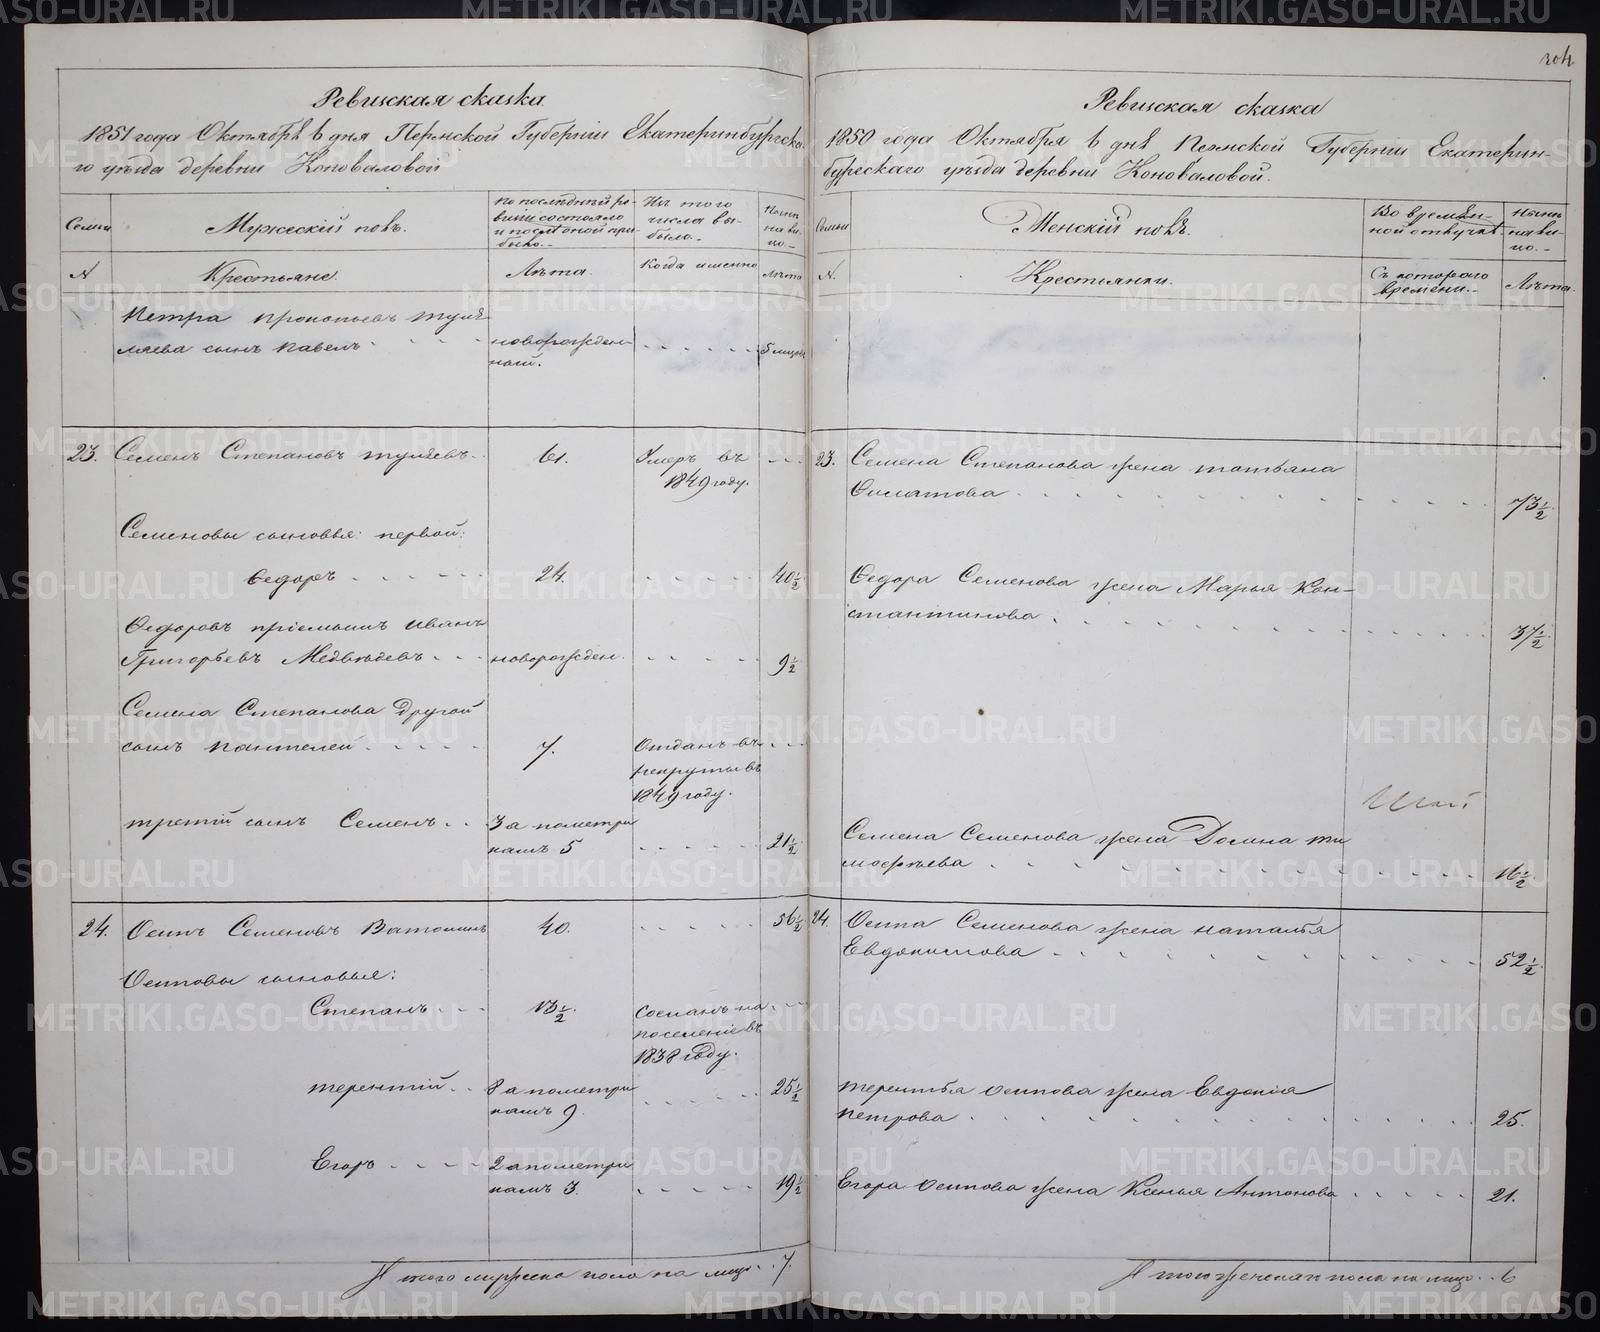 204
Ревизская сказка
1851 года Октября 6 дня Пермской Губерніи Екатеринбургска
го уѣзда деревни Коноваловой
Семьи
Мужескій полъ.
по послѣдней ре-
визіи состояло
и послѣ оной при-
было.-
Изъ того
числа вы-
было.-
Нынѣ
на ли-
цо.-
N
Крестьяне.
Лѣта.
Когда именно
Лѣта
Петра Прокопьевъ
сынъ Павелъ
новорожден-
ный.
5 мицов
23. Семенъ Степановъ Тулѣевъ
61.
Умеръ въ
1849 году.
Семеновы сыновья: первой:
Федоръ
24.
40½
Федоровъ пріемышъ Иванъ
Григорьевъ Медвѣдевъ
новорожден.
9½
Семена Степанова Другой
сынъ Пантелей
7.
Отданъ въ
рекруты въ
1849 году.
третій сынъ Семенъ
За пометри
камъ 5
21½
24. Осипъ Семеновъ Ватолинъ
40.
56½
Осиповы сыновья:
Степанъ
13½
Сосланъ на
поселеніе въ
1838 году.
Терентій
8 а пометри
камъ 9.
25½
Егоръ
2 а пометри
камъ 3.
19½
Итого мужеска пола на лицо 7.
Ревизская сказка
1850 года Октября 6 днѣ Пермской Губерніи Екатерин-
бургскаго уѣзда деревни Коноваловой.
Семьи
Женскій полъ.
Во времян-
ной отлучкѣ
Нынѣ
на ли-
цо.-
N.
Крестьянки.
Съ котораго
времени.
Лѣта.
23. Семена Степанова жена Татьяна
73½
Федора Семенова жена Марья Кон-
стантинова.
37½
Семена Семенова жена Домна Ти
мофѣева
16½
24. Осипа Семенова жена Наталья
Евдокимова
52½
Терентья Осипова жена Евдокія
Петрова
25.
Егора Осипова жена Ксенья Антонова
21.
Итого женска пола на лицо 6
METRIKI.GASO-URAL.RU